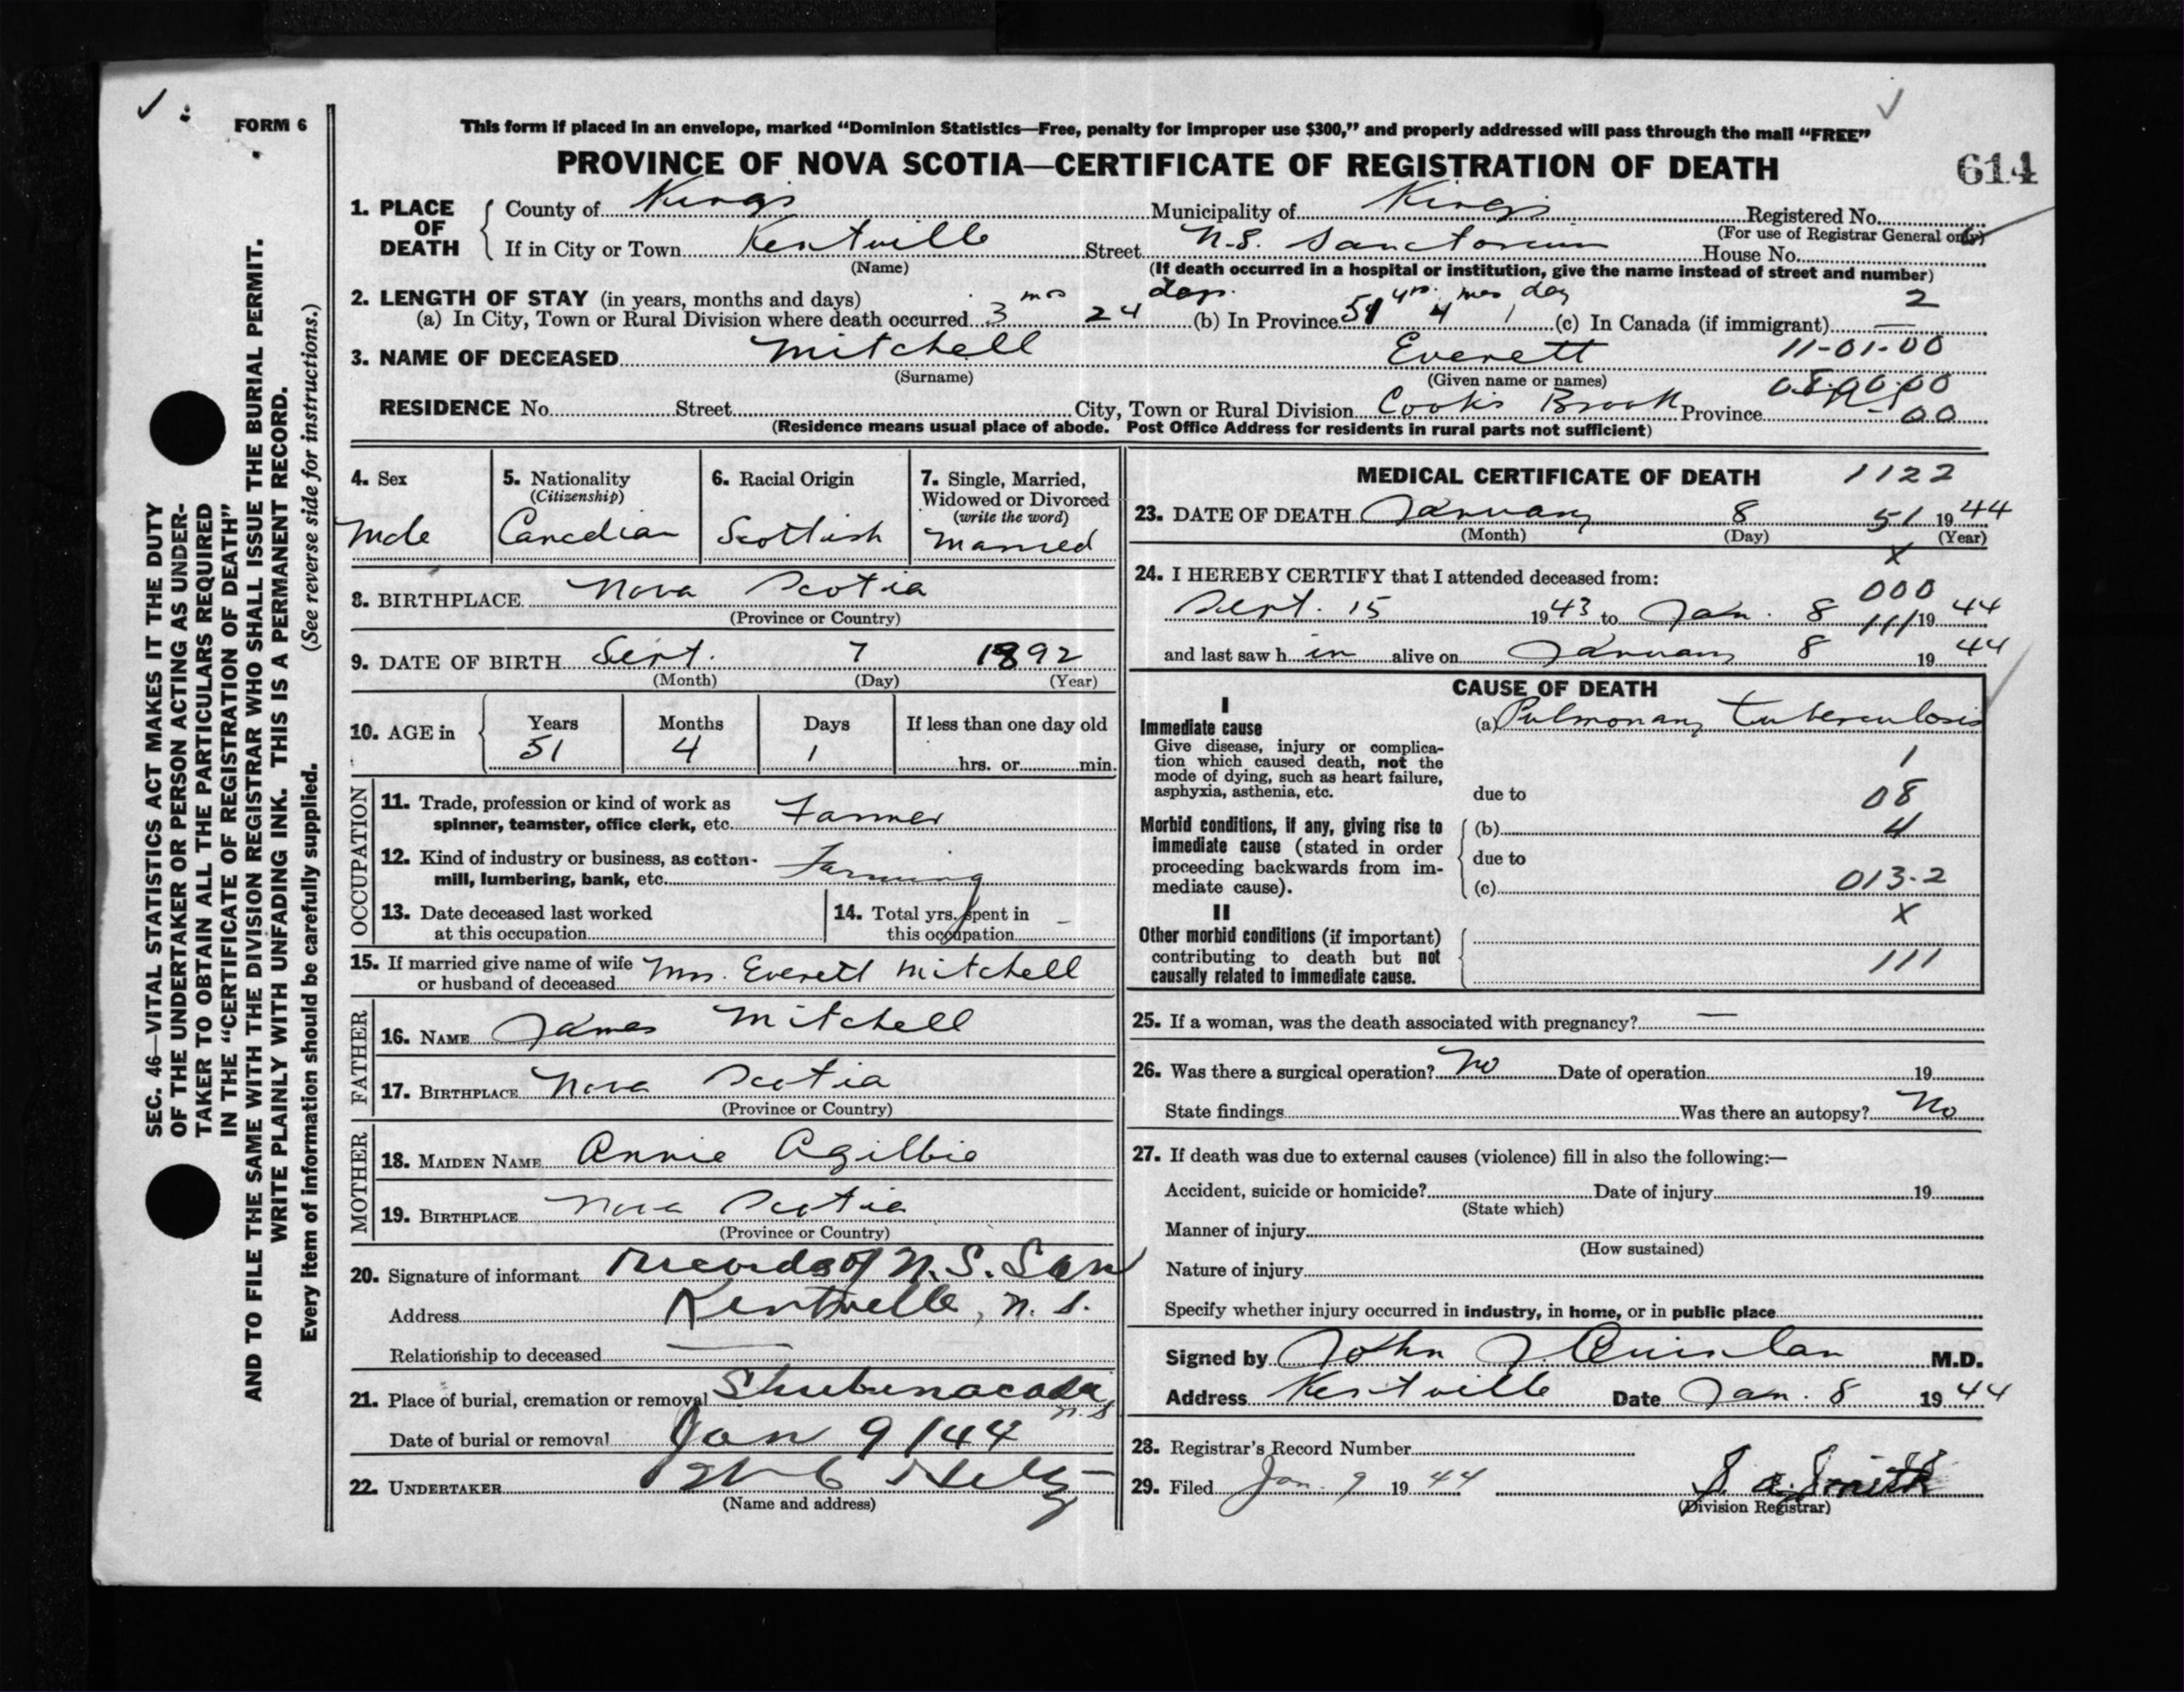 FORM 6
This form if placed in an envelope, marked “Dominion Statistics—Free, penalty for improper use $300,” and properly addressed will pass through the mail “FREE”
PROVINCE OF NOVA SCOTIA—CERTIFICATE OF REGISTRATION OF DEATH
614
1. PLACE OF DEATH
County of Kings Municipality of Kings Registered No.
(For use of Registrar General only)
If in City or Town Kentville Street N.S. Sanctorium House No.
(Name) (If death occurred in a hospital or institution, give the name instead of street and number)
2. LENGTH OF STAY (in years, months and days)
(a) In City, Town or Rural Division where death occurred 3 mos 24 days. (b) In Province 51 yrs. 4 mos 1 day (c) In Canada (if immigrant) — 2
3. NAME OF DECEASED Mitchell Everett 11-01-00
(Surname) (Given name or names)
RESIDENCE No. Street City, Town or Rural Division Cook's Brook Province 00
(Residence means usual place of abode. Post Office Address for residents in rural parts not sufficient)
4. Sex
Male
5. Nationality
(Citizenship)
Canadian
6. Racial Origin
Scottish
7. Single, Married,
Widowed or Divorced
(write the word)
Married
8. BIRTHPLACE Nova Scotia
(Province or Country)
9. DATE OF BIRTH Sept. 7 1892
(Month) (Day) (Year)
10. AGE in Years Months Days If less than one day old
51 4 1 hrs. or min.
OCCUPATION
11. Trade, profession or kind of work as
spinner, teamster, office clerk, etc. Farmer
12. Kind of industry or business, as cotton-
mill, lumbering, bank, etc. Farming
13. Date deceased last worked
at this occupation
14. Total yrs. spent in
this occupation —
15. If married give name of wife
or husband of deceased Mrs. Everett Mitchell
FATHER
16. NAME James Mitchell
17. BIRTHPLACE Nova Scotia
(Province or Country)
MOTHER
18. MAIDEN NAME Annie Agilbie
19. BIRTHPLACE Nova Scotia
(Province or Country)
20. Signature of informant Records of N.S. San
Address Kentville, N.S.
Relationship to deceased —
21. Place of burial, cremation or removal Shubenacadie N.S
Date of burial or removal Jan 9/44
22. UNDERTAKER
(Name and address)
MEDICAL CERTIFICATE OF DEATH 1122
23. DATE OF DEATH January 8 51 1944
(Month) (Day) (Year)
x
24. I HEREBY CERTIFY that I attended deceased from:
000
Sept. 15 1943 to Jan. 8 111 1944
and last saw h im alive on January 8 1944
CAUSE OF DEATH
I
Immediate cause
Give disease, injury or complica-
tion which caused death, not the
mode of dying, such as heart failure,
asphyxia, asthenia, etc.
(a) Pulmonary tuberculosis
1
due to 08
Morbid conditions, if any, giving rise to
immediate cause (stated in order
proceeding backwards from im-
mediate cause).
(b) 4
due to
(c) 013-2
II
x
Other morbid conditions (if important)
contributing to death but not
causally related to immediate cause.
111
25. If a woman, was the death associated with pregnancy? —
26. Was there a surgical operation? No Date of operation 19
State findings Was there an autopsy? No
27. If death was due to external causes (violence) fill in also the following:—
Accident, suicide or homicide? Date of injury 19
(State which)
Manner of injury
(How sustained)
Nature of injury
Specify whether injury occurred in industry, in home, or in public place
Signed by John J Quinlan M.D.
Address Kentville Date Jan. 8 1944
28. Registrar's Record Number
29. Filed Jan. 9 1944 Smith
(Division Registrar)
SEC. 46—VITAL STATISTICS ACT MAKES IT THE DUTY
OF THE UNDERTAKER OR PERSON ACTING AS UNDER-
TAKER TO OBTAIN ALL THE PARTICULARS REQUIRED
IN THE “CERTIFICATE OF REGISTRATION OF DEATH”
AND TO FILE THE SAME WITH THE DIVISION REGISTRAR WHO SHALL ISSUE THE BURIAL PERMIT.
WRITE PLAINLY WITH UNFADING INK. THIS IS A PERMANENT RECORD.
Every item of information should be carefully supplied. (See reverse side for instructions.)